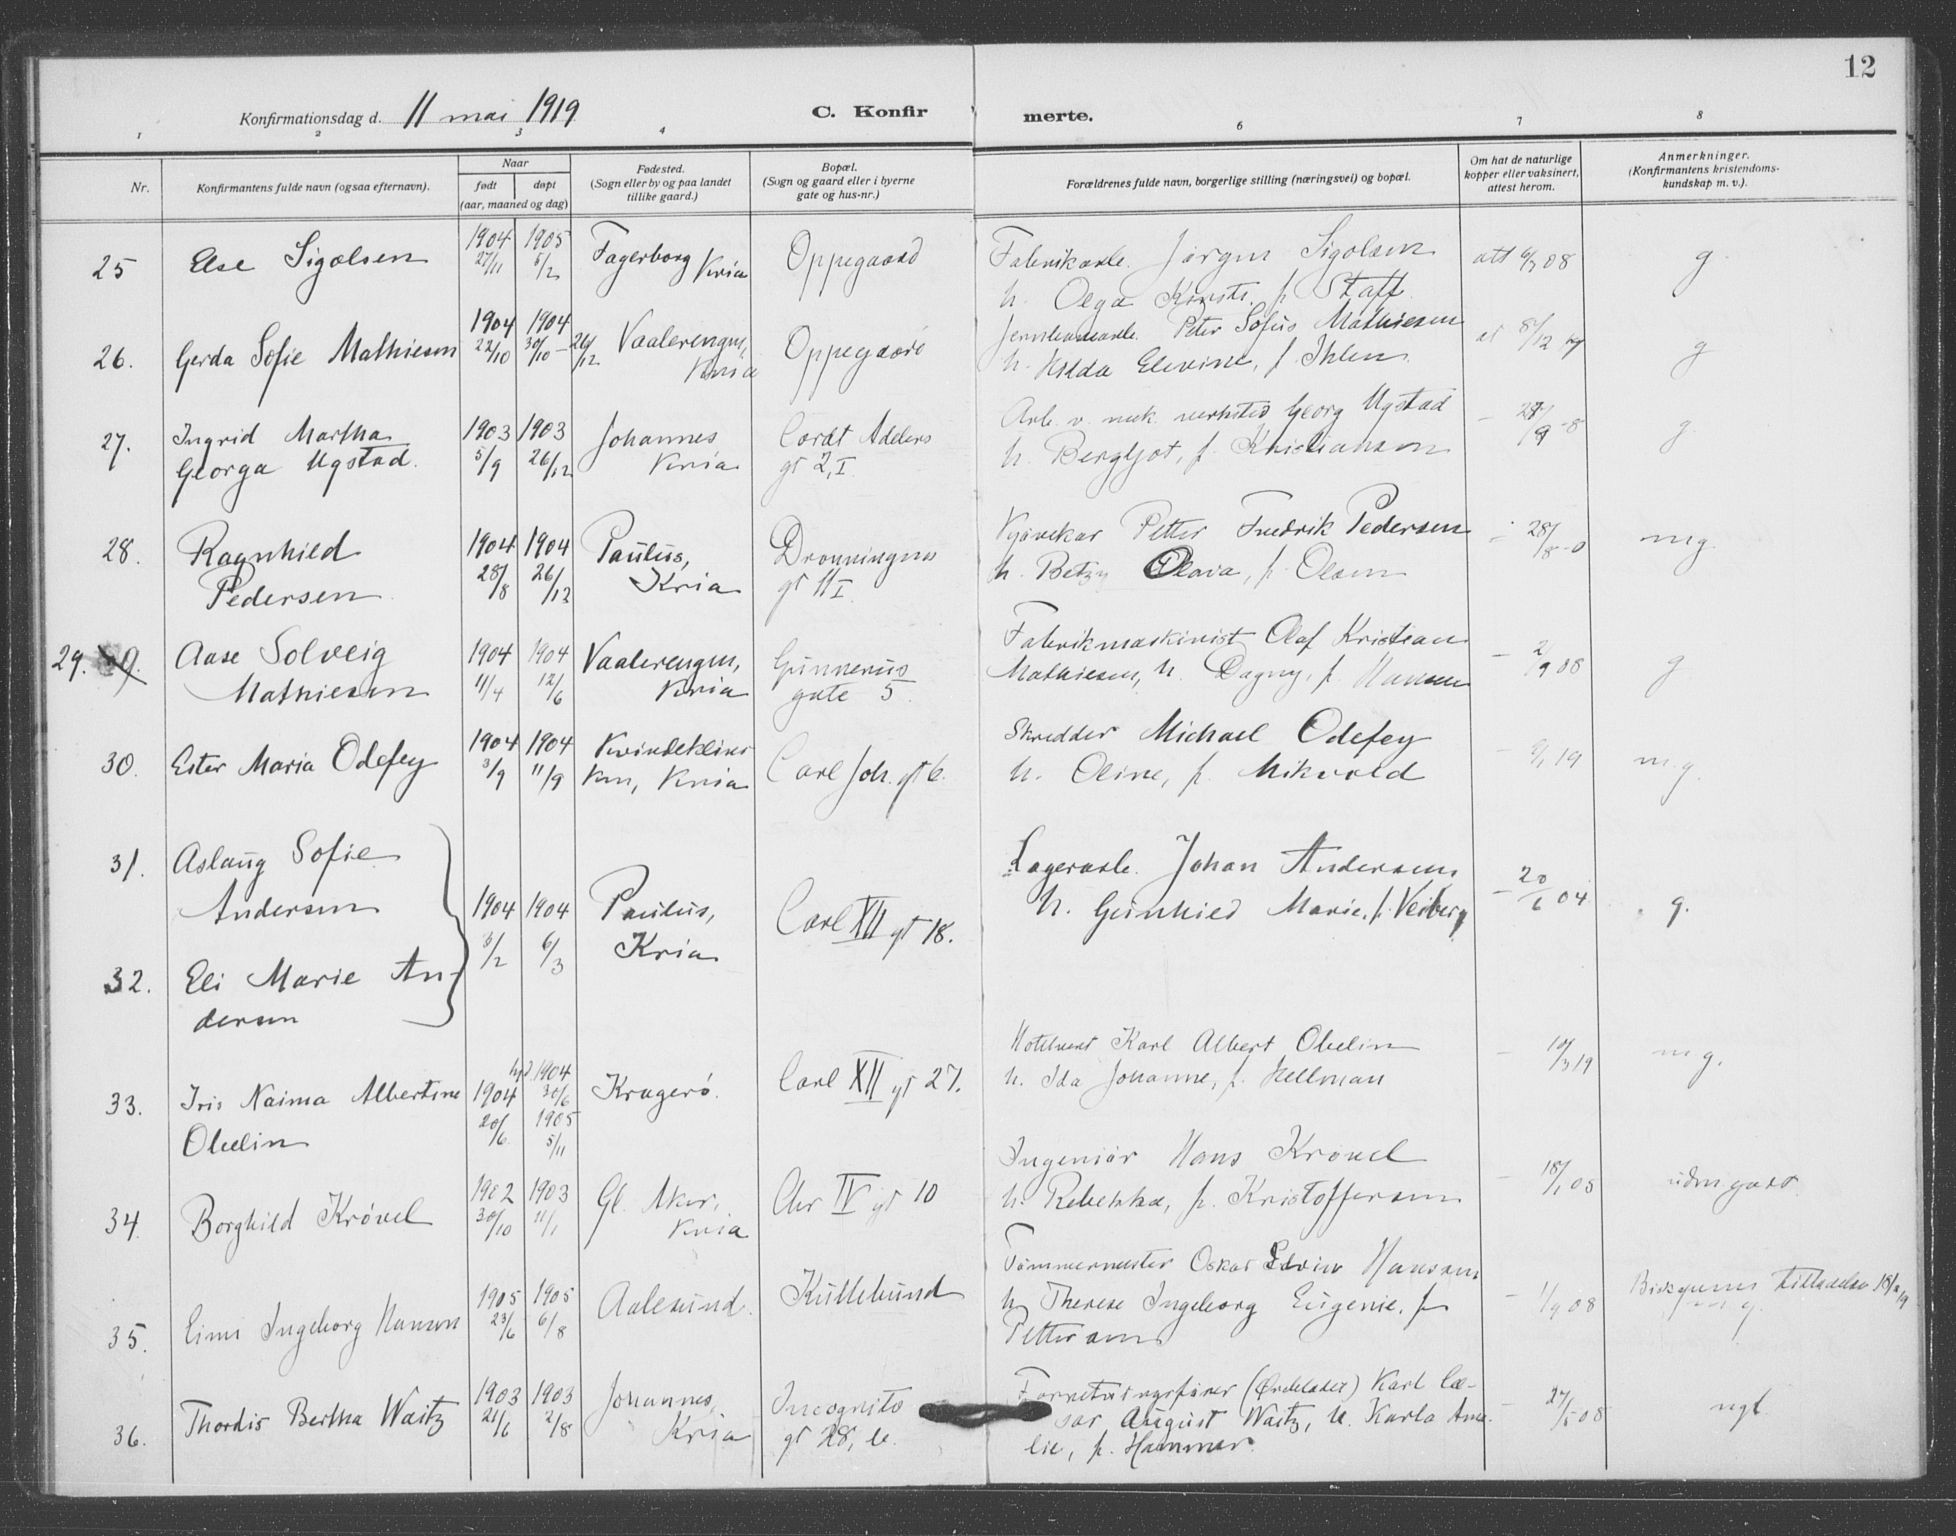 12
Konfirmationsdag d. 11 mai 1919
C. Konfir merte.
1 2 3 4 6 7 8
Nr.
Konfirmantens fulde navn (ogsaa efternavn).
Naar
født døpt
(aar, maaned og dag)
Fødested.
(Sogn eller by og paa landet
tillike gaard.)
Bopæl.
(Sogn og gaard eller i byerne
gate og hus-nr.)
Forældrenes fulde navn, borgerlige stilling (næringsvei) og bopæl.
Om hat de naturlige
kopper eller vaksinert,
attest herom.
Anmerkninger.
(Konfirmantens kristendoms-
kundskap m. v.).
25 Else Sigolsen 1904 27/11 1905 5/2 Fagerborg Kria Oppegaard
Fabrikarb. Jørgen Sigolsen att 6/7 08 g.
h. Olga Konst. f. Staff
26. Gerda Sofie Mathiesen 1904 22/10 1904 30/10 - 26/12 Vaalerengen, Kria Oppegaard
Peter Sofus Mathiesen at 8/12 g
h. Hilda Elevine, f. Ihlen
27. Ingrid Martha
Georga Ugstad. 1903 5/9 1903 26/12 Johannes Kria Cordt Adelers
gt 2, I
Arb. v. mek. verksted Georg Ugstad - 28/9 -8 g.
h. Bergljot, f. Kristiansen
28. Ragnhild
Pedersen 1904 28/8 1904 26/12 Paulus, Kria Dronningens
gt 11 I
Petter Fredrik Pedersen - 28/8 -0 mg.
h. Betzy Olava, f. Olsen
29. Aase Solveig
Mathiesen 1904 11/4 1904 12/6 Vaalerengen, Kria Gunnerus
gate 5.
Fabrikmaskinist Olaf Kristian
Mathiesen, h. Dagny, f. Hansen - 2/9 08 g
30. Ester Maria Odefey 1904 3/9 1904 11/9 Kvindeklinik
ken, Kria Carl Joh. gt 6.
Skredder Michael Odefey - 9/1 19 m.g.
h. Oline, f. Mikvold
31. Aslaug Sofie
Andersen
1904 3/2 1904 6/3 Paulus, Kria Carl XII gt 18.
Lagerarb. Johan Andersen - 20/6 04 g.
h. Gunhild Marie, f. Veiberg
32. Eli Marie An-
dersen
33. Iris Naima Albertine
Obelin 1904 20/6 hjd. 1904 30/6 1905 5/11 Kragerö. Carl XII gt 27.
Karl Albert Obelin - 10/3 19 mg.
h. Ida Johanne, f. Hellman
34. Borghild Krövel 1902 30/10 1903 11/1 Gl. Aker, Kria Chr IV gt 10
Ingeniör Hans Krövel - 18/1 05 udm. godt
h. Rebekka, f. Kristoffersen
35. Eimi Ingeborg Hansen 1905 23/6 1905 6/8 Aalesund. Kullebund
Tømmermester Oskar Edvin Hansen
h. Therese Ingeborg Eugenie, f. - 1/9 08 Biskopens tilladelse 18/2 19
Pettersen mg.
36. Thordis Bertha Waitz 1903 21/6 1903 2/8 Johannes, Kria Incognito
gt 28, b.
Forretningsfører (Ordeladet) Karl Cæ-
sar August Waitz, h. Karla Ama- - 27/5 08 mgt.
lie, f. Hammer.